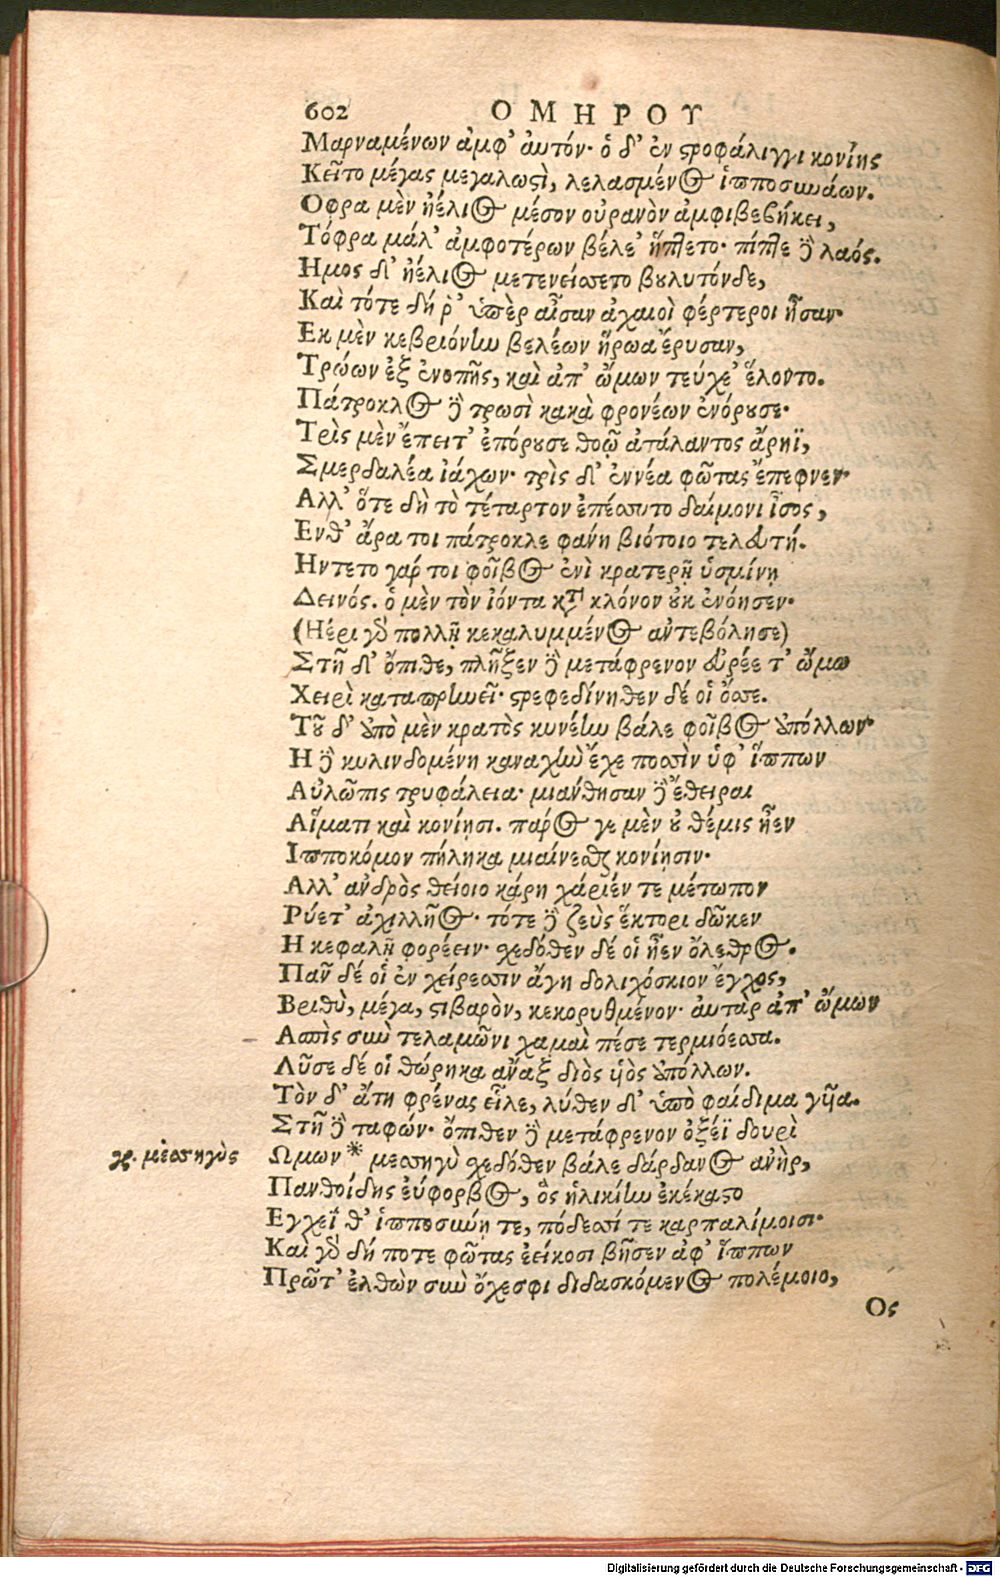 602 ΟΜΗΡΟΥ
Μαρναμένων ἀμφ' ἀυτόν· ὁ δ' ἐν στροφάλιγγι κονίης
Κεῖτο μέγας μεγαλωστὶ, λελασμένος ἱπποσυνάων.
Οφρα μὲν ἠέλιος μέσον οὐρανὸν ἀμφιβεβήκει,
Τόφρα μάλ' ἀμφοτέρων βέλε' ἥπτετο· πίπτε δὲ λαός.
Ημος δ' ἠέλιος μετενείσσετο βουλυτόνδε,
Καὶ τότε δή ῥ' ὑπὲρ αἶσαν ἀχαιοὶ φέρτεροι ἦσαν·
Εκ μὲν κεβριόνην βελέων ἥρωα ἔρυσαν,
Τρώων ἐξ ἐνοπῆς, καὶ ἀπ' ὤμων τεύχε' ἕλοντο.
Πάτροκλος δὲ τρωσὶ κακὰ φρονέων ἐνόρουσε·
Τρὶς μὲν ἔπειτ' ἐπόρουσε θοῷ ἀτάλαντος ἄρηϊ,
Σμερδαλέα ἰάχων· τρὶς δ' ἐννέα φῶτας ἔπεφνεν·
Αλλ' ὅτε δὴ τὸ τέταρτον ἐπέσσυτο δαίμονι ἶσος,
Ενθ' ἄρα τοι πάτροκλε φανή βιότοιο τελευτή.
Ηντετο γάρ τοι φοῖβος ἐνὶ κρατερῇ ὑσμίνῃ
Δεινός. ὁ μὲν τὸν ἰόντα κατὰ κλόνον οὐκ ἐνόησεν·
(Ηέρι γὰρ πολλῇ κεκαλυμμένος ἀντεβόλησε)
Στῆ δ' ὄπιθε, πλῆξεν δὲ μετάφρενον εὐρέε τ' ὤμω
Χειρὶ καταπρηνεῖ· στρεφεδίνηθεν δέ οἱ ὄσσε.
Τοῦ δ' ἀπὸ μὲν κρατὸς κυνέην βάλε φοῖβος ἀπόλλων·
Η δὲ κυλινδομένη καναχὴν ἔχε ποσσὶν ὑφ' ἵππων
Αὐλῶπις τρυφάλεια· μιάνθησαν δὲ ἔθειραι
Αἵματι καὶ κονίῃσι. πάρος γε μὲν οὐ θέμις ἦεν
Ιπποκόμον πήληκα μιαίνεσθαι κονίῃσιν·
Αλλ' ἀνδρὸς θείοιο κάρη χάριέν τε μέτωπον
Ρύετ' ἀχιλλῆος· τότε δὲ ζεὺς ἕκτορι δῶκεν
Η κεφαλῇ φορέειν· σχεδόθεν δέ οἱ ἦεν ὄλεθρος.
Πᾶν δέ οἱ ἐν χείρεσσιν ἄγη δολιχόσκιον ἔγχος,
Βριθὺ, μέγα, στιβαρὸν, κεκορυθμένον· ἀυτὰρ ἀπ' ὤμων
Ασπὶς σὺν τελαμῶνι χαμαὶ πέσε τερμιόεσσα.
Λῦσε δέ οἱ θώρηκα ἄναξ διὸς υἱὸς ἀπόλλων.
Τὸν δ' ἄτη φρένας εἷλε, λύθεν δ' ὑπὸ φαίδιμα γυῖα.
Στῆ δὲ ταφών· ὄπιθεν δὲ μετάφρενον ὀξέϊ δουρὶ
γρ. μεσσηγὺς Ωμων * μεσσηγὺ σχεδόθεν βάλε δάρδανος ἀνὴρ,
Πανθοίδης εὔφορβος, ὃς ἡλικίην ἐκέκαστο
Εγχεΐ θ' ἱπποσύνῃ τε, πόδεσσί τε καρπαλίμοισι·
Καὶ γὰρ δή ποτε φῶτας ἐείκοσι βῆσεν ἀφ' ἵππων
Πρῶτ' ἐλθὼν σὺν ὄχεσφι διδασκόμενος πολέμοιο,
Ος
Digitalisierung gefördert durch die Deutsche Forschungsgemeinschaft - DFG